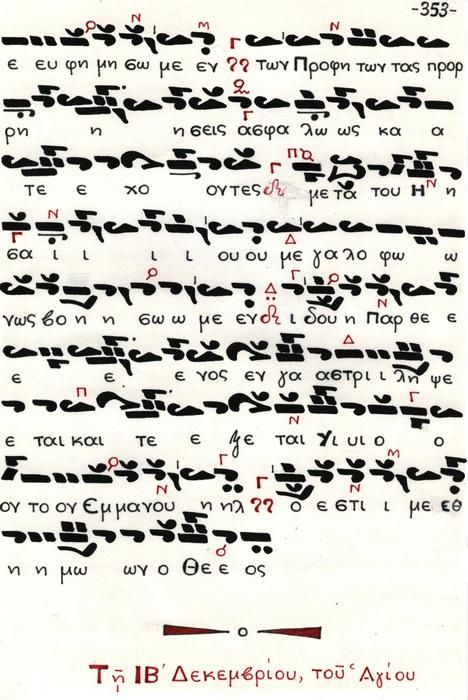 -353-
ε ευ φη μη σω με εν των Προφη των τας προρ
ρη η η σεις ασφα λω ως κα α
τε ε χο οντες με τα του Η η
σα ι ι ι ι ου ου με γαλο φω ω
νως βο η η σω ω με εν ι δου η Παρ θε ε
ε ε ε νος εν γα αστρι ι λη ψε
ε ται και τε ε ξε ται Υι υιο ο ο
ον το ον Εμ μανου η ηλ ο ε στι ι με εθ
η η μω ων ο Θε ε ος
Τῇ ΙΒ΄ Δεκεμβρίου, τοῦ Ἁγίου